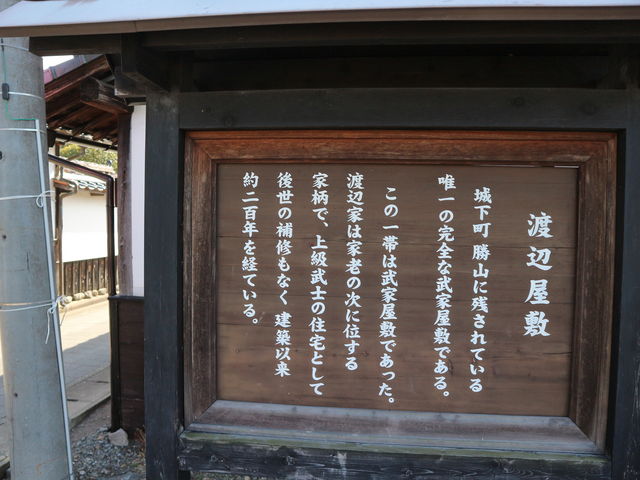 渡辺屋敷
城下町 勝山に残されている
唯一の完全な武家屋敷である。
この一帯は武家屋敷であった。
渡辺家は家老の次に位する
家柄で、上級武士の住宅として
後世の補修もなく 建築以来
約二百年を経ている。